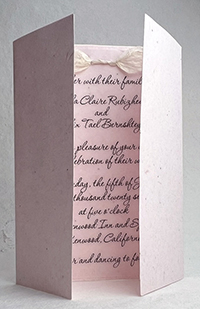 er with their famil
a Claire Rubighe
and
in Tael Bernshtey
pleasure of your
elebration of their w
day, the fifth of
thousand twenty
at five o'clock
enwood Inn and S
enwood, California
er and dancing to f